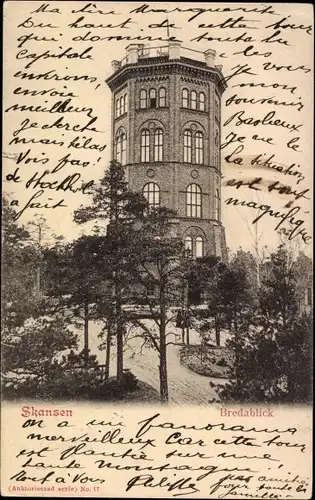 Ma chère Marguerite
Du haut de cette tour
qui domine toute la
Capitale et les
environs, je
envoie mon
meilleur Baslieux
je cherche Je ne le
mais hélas
Vois pas!
la situation
de Stockholm est tout
à fait magnifique
Skansen Bredablick
on a un panorama
merveilleux Car cette tour
est plantée sur une
haute montagne pour toute la
(Auktoriserad serie) No. 17
famille